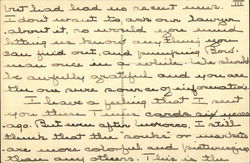 III
but had had us recent news.
I don't want to ask our lawyer
about it, so would you mind
letting us know any thing you
can find out, and pumping Bow.
once in a while. We should
be awfully grateful and you are
the one sure source of information.
I have a feeling that I sent
you these I wrote cards six weeks
ago. But even after moves, I still
think that the "souks" or markets
are more colorful and picturesque
than any others. This is the